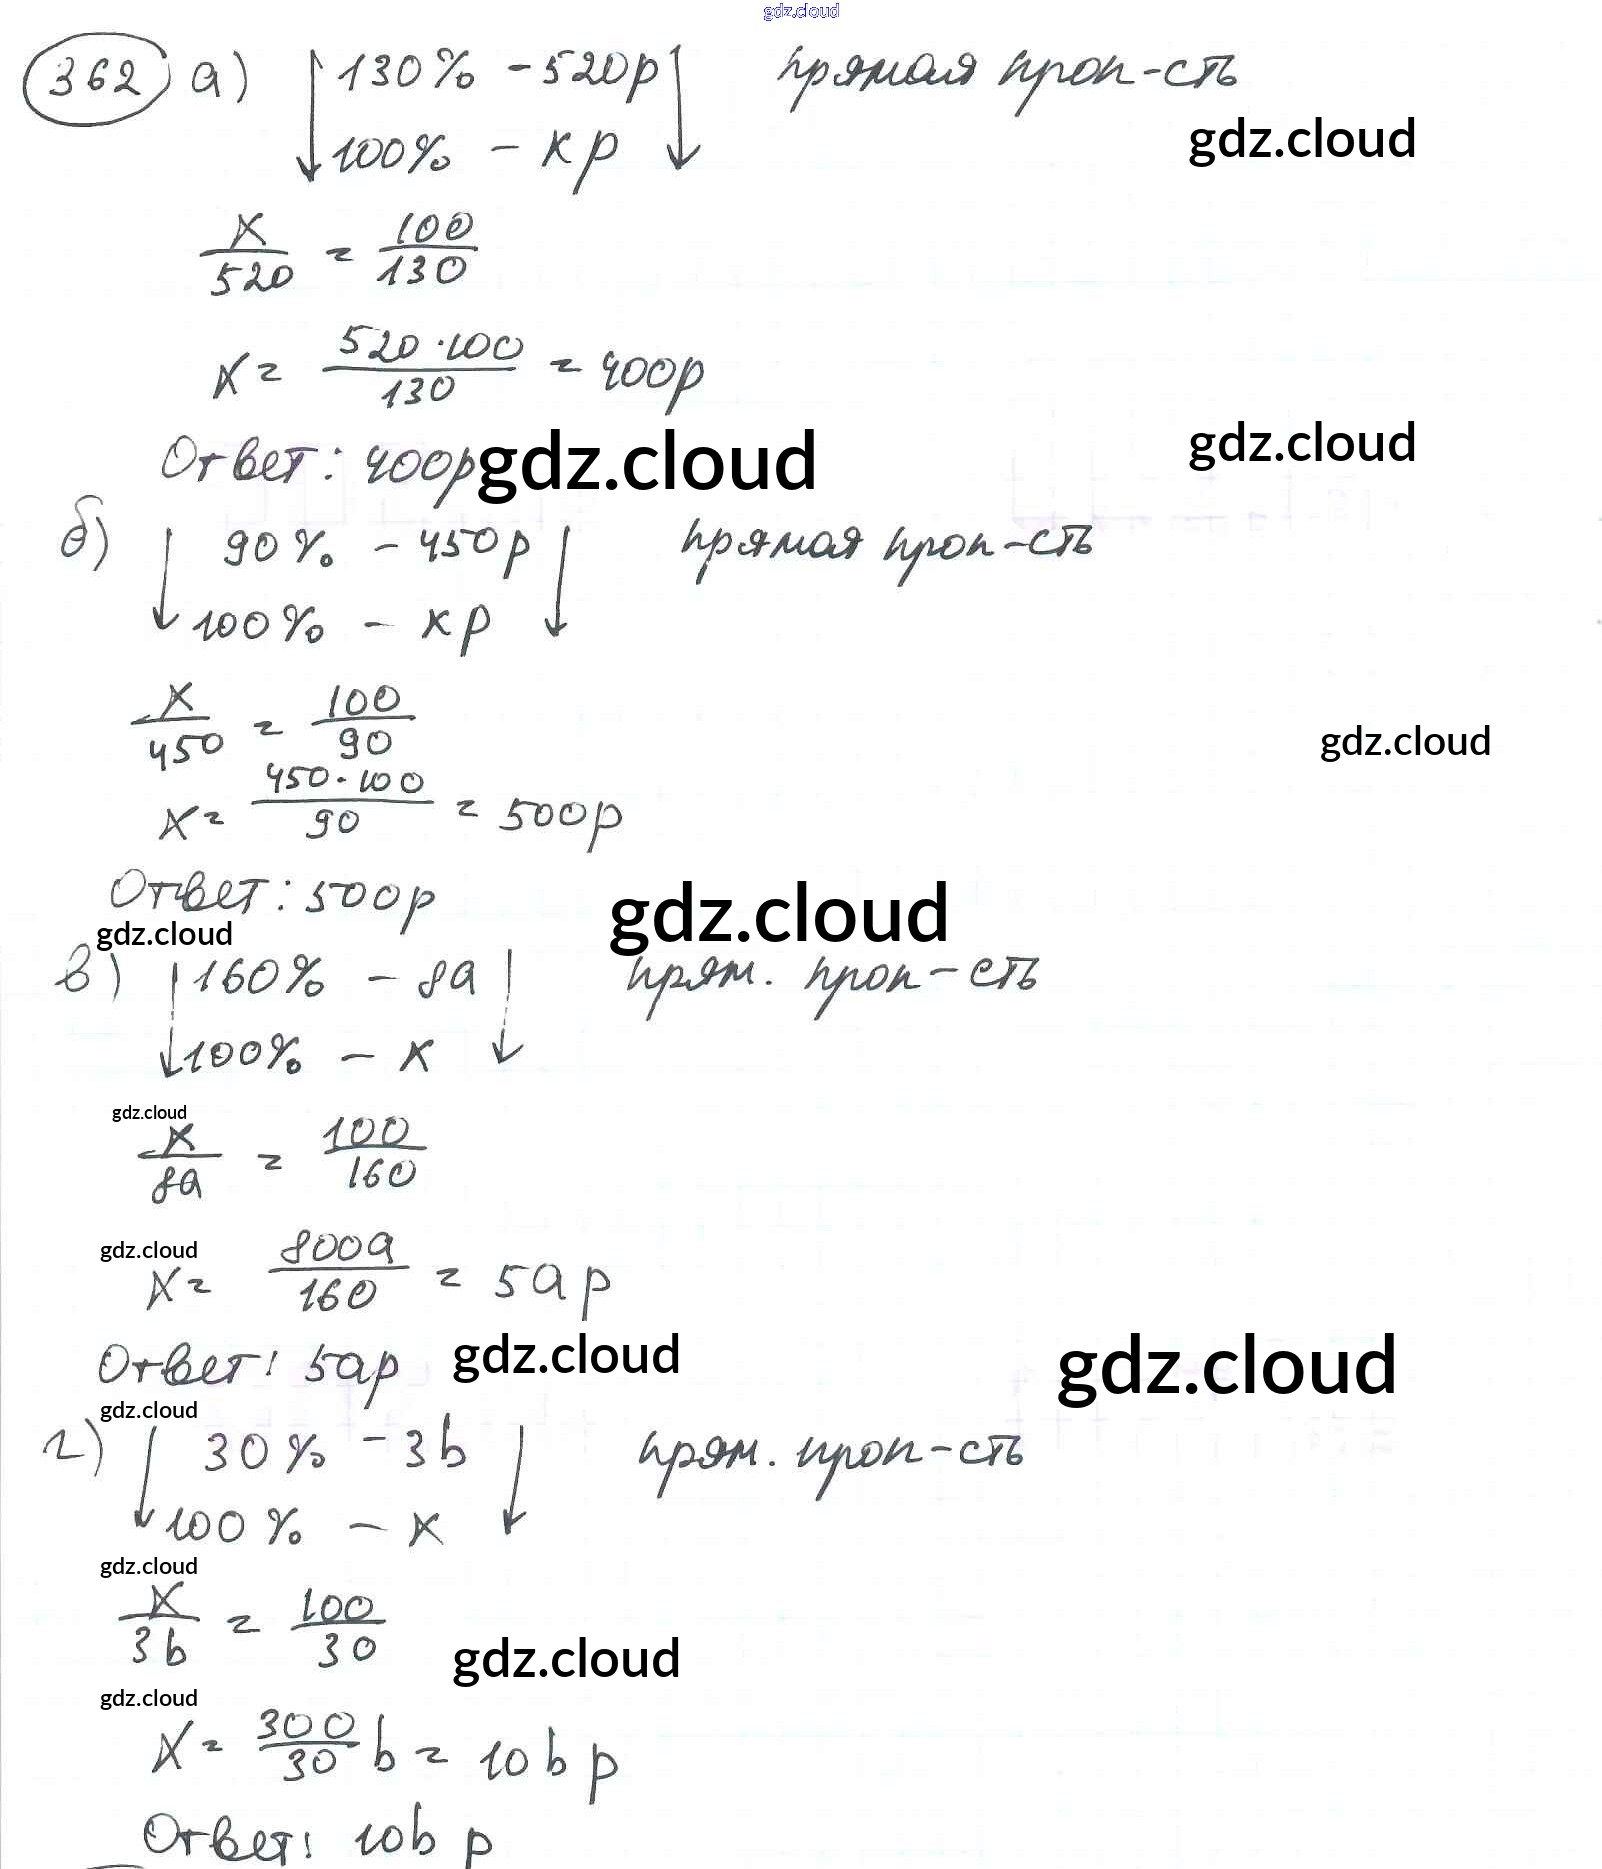 gdz.cloud
362 а) 130% - 520р прямая проп-сть
gdz.cloud
100% - х р
х/520 = 100/130
х = 520·100/130 = 400р
gdz.cloud
Ответ: 400р gdz.cloud
б) 90% - 450р прямая проп-сть
100% - х р
х/450 = 100/90
gdz.cloud
х = 450·100/90 = 500р
Ответ: 500р gdz.cloud
gdz.cloud
в) 160% - 8а прям. проп-сть
100% - х
gdz.cloud
х/8а = 100/160
gdz.cloud
х = 800а/160 = 5а р
Ответ: 5ар gdz.cloud gdz.cloud
gdz.cloud
г) 30% - 3b прям. проп-сть
100% - х
gdz.cloud
х/3b = 100/30
gdz.cloud
gdz.cloud
х = 300/30 b = 10b р
Ответ: 10b р